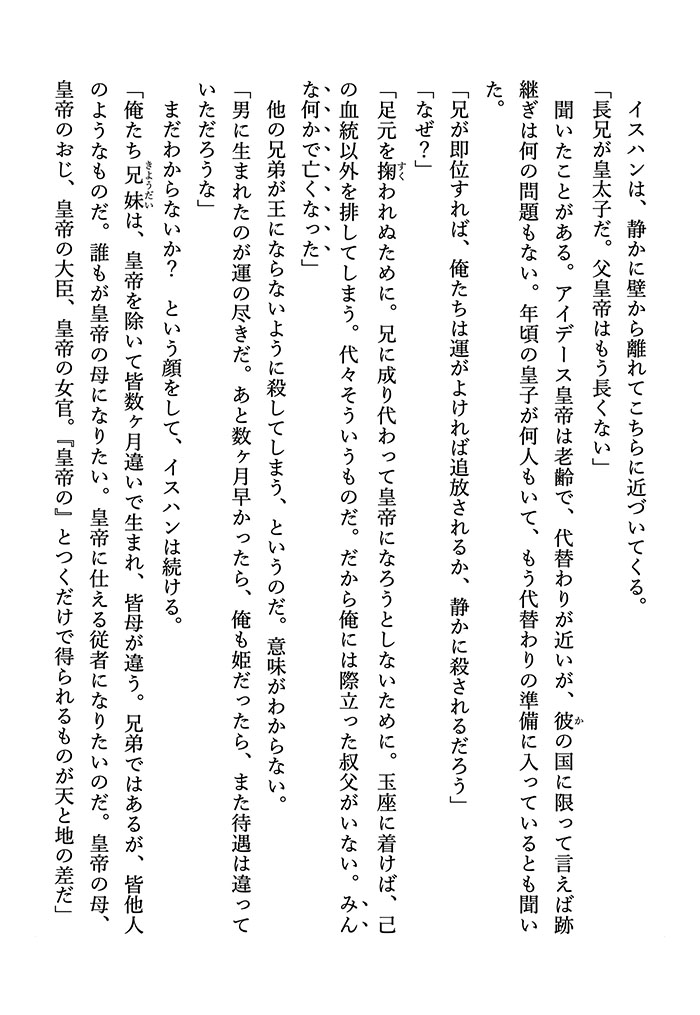 イスハンは、静かに壁から離れてこちらに近づいてくる。
「長兄が皇太子だ。父皇帝はもう長くない」
　聞いたことがある。アイデース皇帝は老齢で、代替わりが近いが、彼の国に限って言えば跡
継ぎは何の問題もない。年頃の皇子が何人もいて、もう代替わりの準備に入っているとも聞い
た。
「兄が即位すれば、俺たちは運がよければ追放されるか、静かに殺されるだろう」
「なぜ？」
「足元を掬われぬために。兄に成り代わって皇帝になろうとしないために。玉座に着けば、己
の血統以外を排してしまう。代々そういうものだ。だから俺には際立った叔父がいない。みん
な何かで亡くなった」
　他の兄弟が王にならないように殺してしまう、というのだ。意味がわからない。
「男に生まれたのが運の尽きだ。あと数ヶ月早かったら、俺も姫だったら、また待遇は違って
いただろうな」
　まだわからないか？　という顔をして、イスハンは続ける。
「俺たち兄妹は、皇帝を除いて皆数ヶ月違いで生まれ、皆母が違う。兄弟ではあるが、皆他人
のようなものだ。誰もが皇帝の母になりたい。皇帝に仕える従者になりたいのだ。皇帝の母、
皇帝のおじ、皇帝の大臣、皇帝の女官。『皇帝の』とつくだけで得られるものが天と地の差だ」